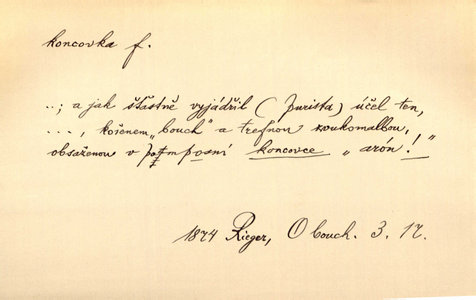 koncovka f.
..; a jak šťastně vyjádřil (purista) účel ten,
..., kořenem „bouch" a trefnou zvukomalbou,
obsaženou v posní koncovce „arón!"
1874 Rieger, O bouch. 3. 17.